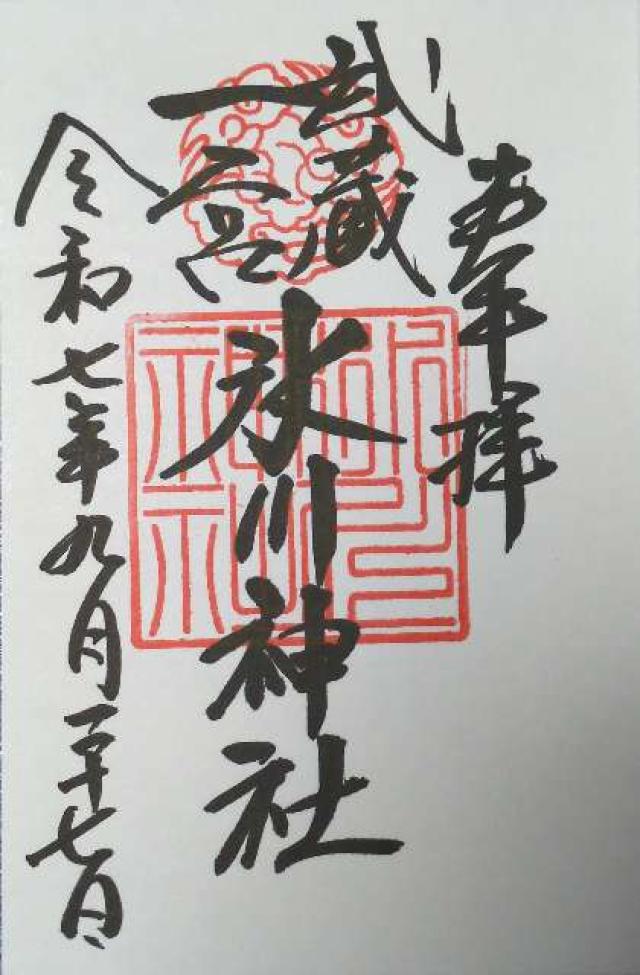 奉拝
武蔵
一宮
氷川神社
令和七年九月二十七日